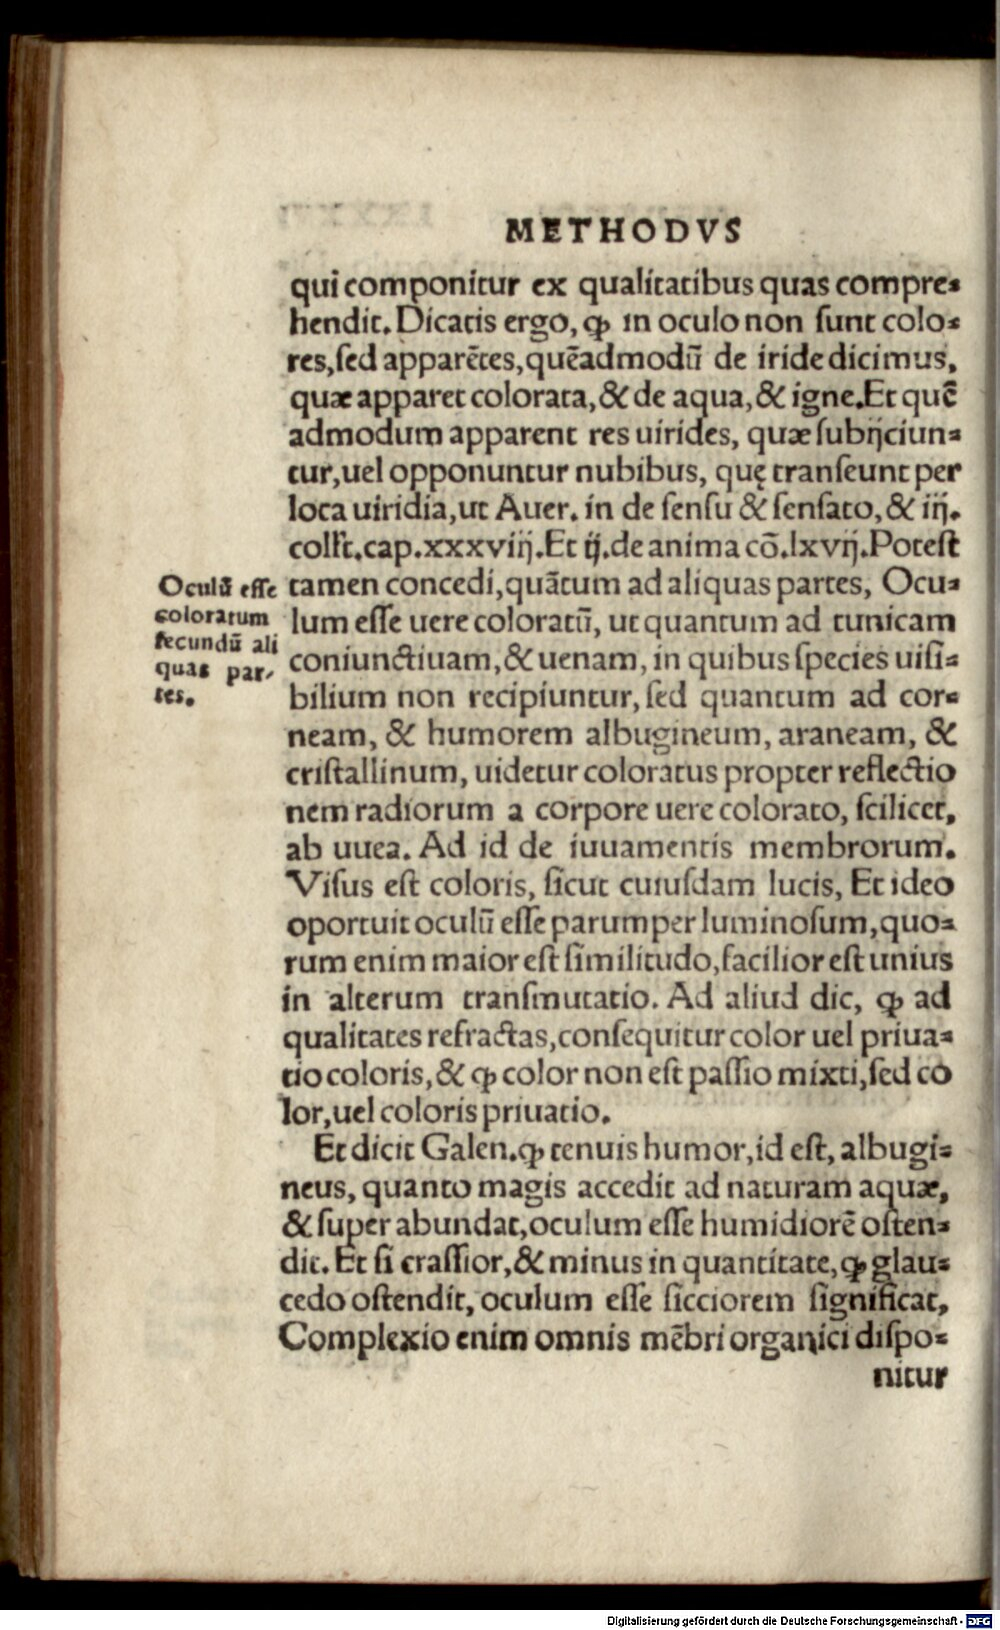 METHODVS
qui componitur ex qualitatibus quas compre⸗
hendit. Dicatis ergo, ꝙ in oculo non ſunt colo⸗
res, ſed apparētes, quēadmodū de iride dicimus,
quæ apparet colorata, & de aqua, & igne. Et quē
admodum apparent res uirides, quæ ſubijciun⸗
tur, uel opponuntur nubibus, quę tranſeunt per
loca uiridia, ut Auer. in de ſenſu & ſenſato, & iij.
collt̄. cap. xxxviij. Et ij. de anima cō. lxvij. Poteſt
tamen concedi, quātum ad aliquas partes, Ocu⸗
lum eſſe uere coloratū, ut quantum ad tunicam
coniunctiuam, & uenam, in quibus ſpecies uiſi⸗
bilium non recipiuntur, ſed quantum ad cor⸗
neam, & humorem albugineum, araneam, &
criſtallinum, uidetur coloratus propter reflectio
nem radiorum a corpore uere colorato, ſcilicet,
ab uuea. Ad id de iuuamentis membrorum.
Viſus eſt coloris, ſicut cuiuſdam lucis, Et ideo
oportuit oculū eſſe parumper luminoſum, quo⸗
rum enim maior eſt ſimilitudo, facilior eſt unius
in alterum tranſmutatio. Ad aliud dic, ꝙ ad
qualitates refractas, conſequitur color uel priua⸗
tio coloris, & ꝙ color non eſt paſſio mixti, ſed co
lor, uel coloris priuatio.
Et dicit Galen. ꝙ tenuis humor, id eſt, albugi⸗
neus, quanto magis accedit ad naturam aquæ,
& ſuper abundat, oculum eſſe humidiorē oſten⸗
dit. Et ſi craſſior, & minus in quantitate, ꝙ glau⸗
cedo oſtendit, oculum eſſe ſicciorem ſignificat,
Complexio enim omnis mēbri organici diſpo⸗
nitur
Oculū eſſe
coloratum
ſecundū ali
quas par-
tes.
Digitalisierung gefördert durch die Deutsche Forschungsgemeinschaft - DFG